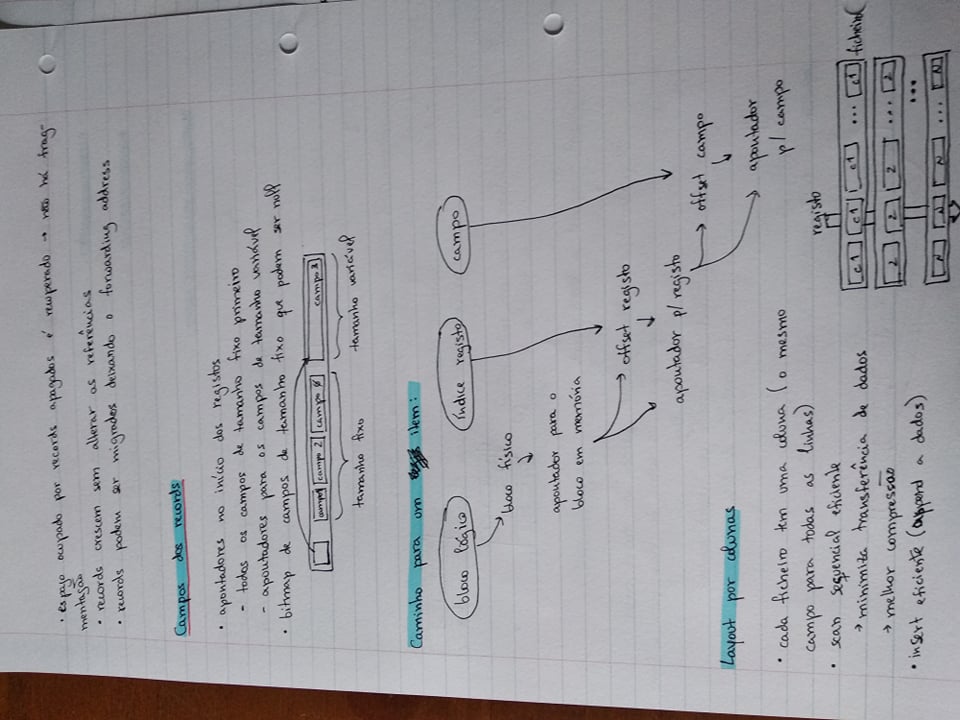 • espaço ocupado por records apagados é recuperado → não há frag-
mentação
• records crescem sem alterar as referências
• records podem ser migrados deixando o forwarding address
Campos dos records
• apontadores no início dos registos
- todos os campos de tamanho fixo primeiro
- apontadores para os campos de tamanho variável
• bitmap de campos de tamanho fixo que podem ser null
campo1 campo 2 campo campo 3
tamanho fixo tamanho variável
Caminho para um item:
bloco lógico índice registo campo
bloco físico
apontador para o
bloco em memória
offset registo
apontador p/ registo
offset campo
apontador
p/ campo
Layout por colunas
• cada ficheiro tem uma coluna (o mesmo
campo para todas as linhas)
• scan sequencial eficiente
→ minimiza transferência de dados
→ melhor compressão
• insert eficiente (append a dados)
registo
c1 c1 c1 ... c1 ficheiro
2 2 2 ... 2
...
N N N ... N